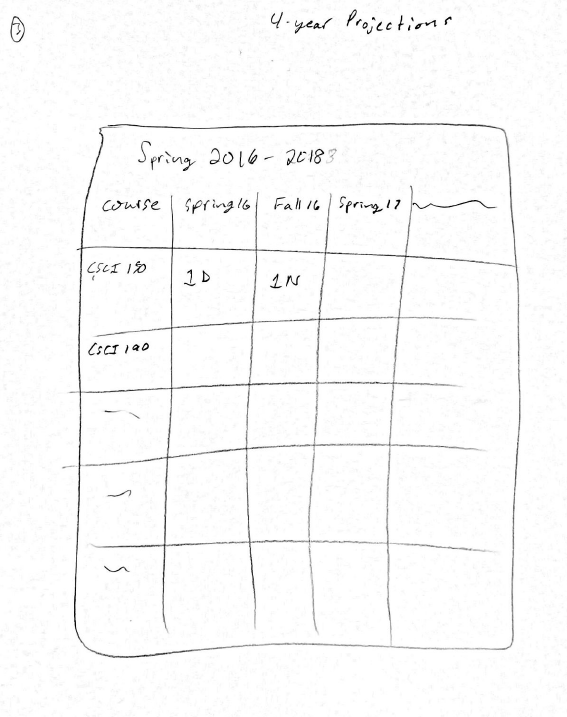 ③ 4-year Projections
Spring 2016 - 2018
course Spring 16 Fall 16 Spring 17
CSCI 150 1D 1N
CSCI 190